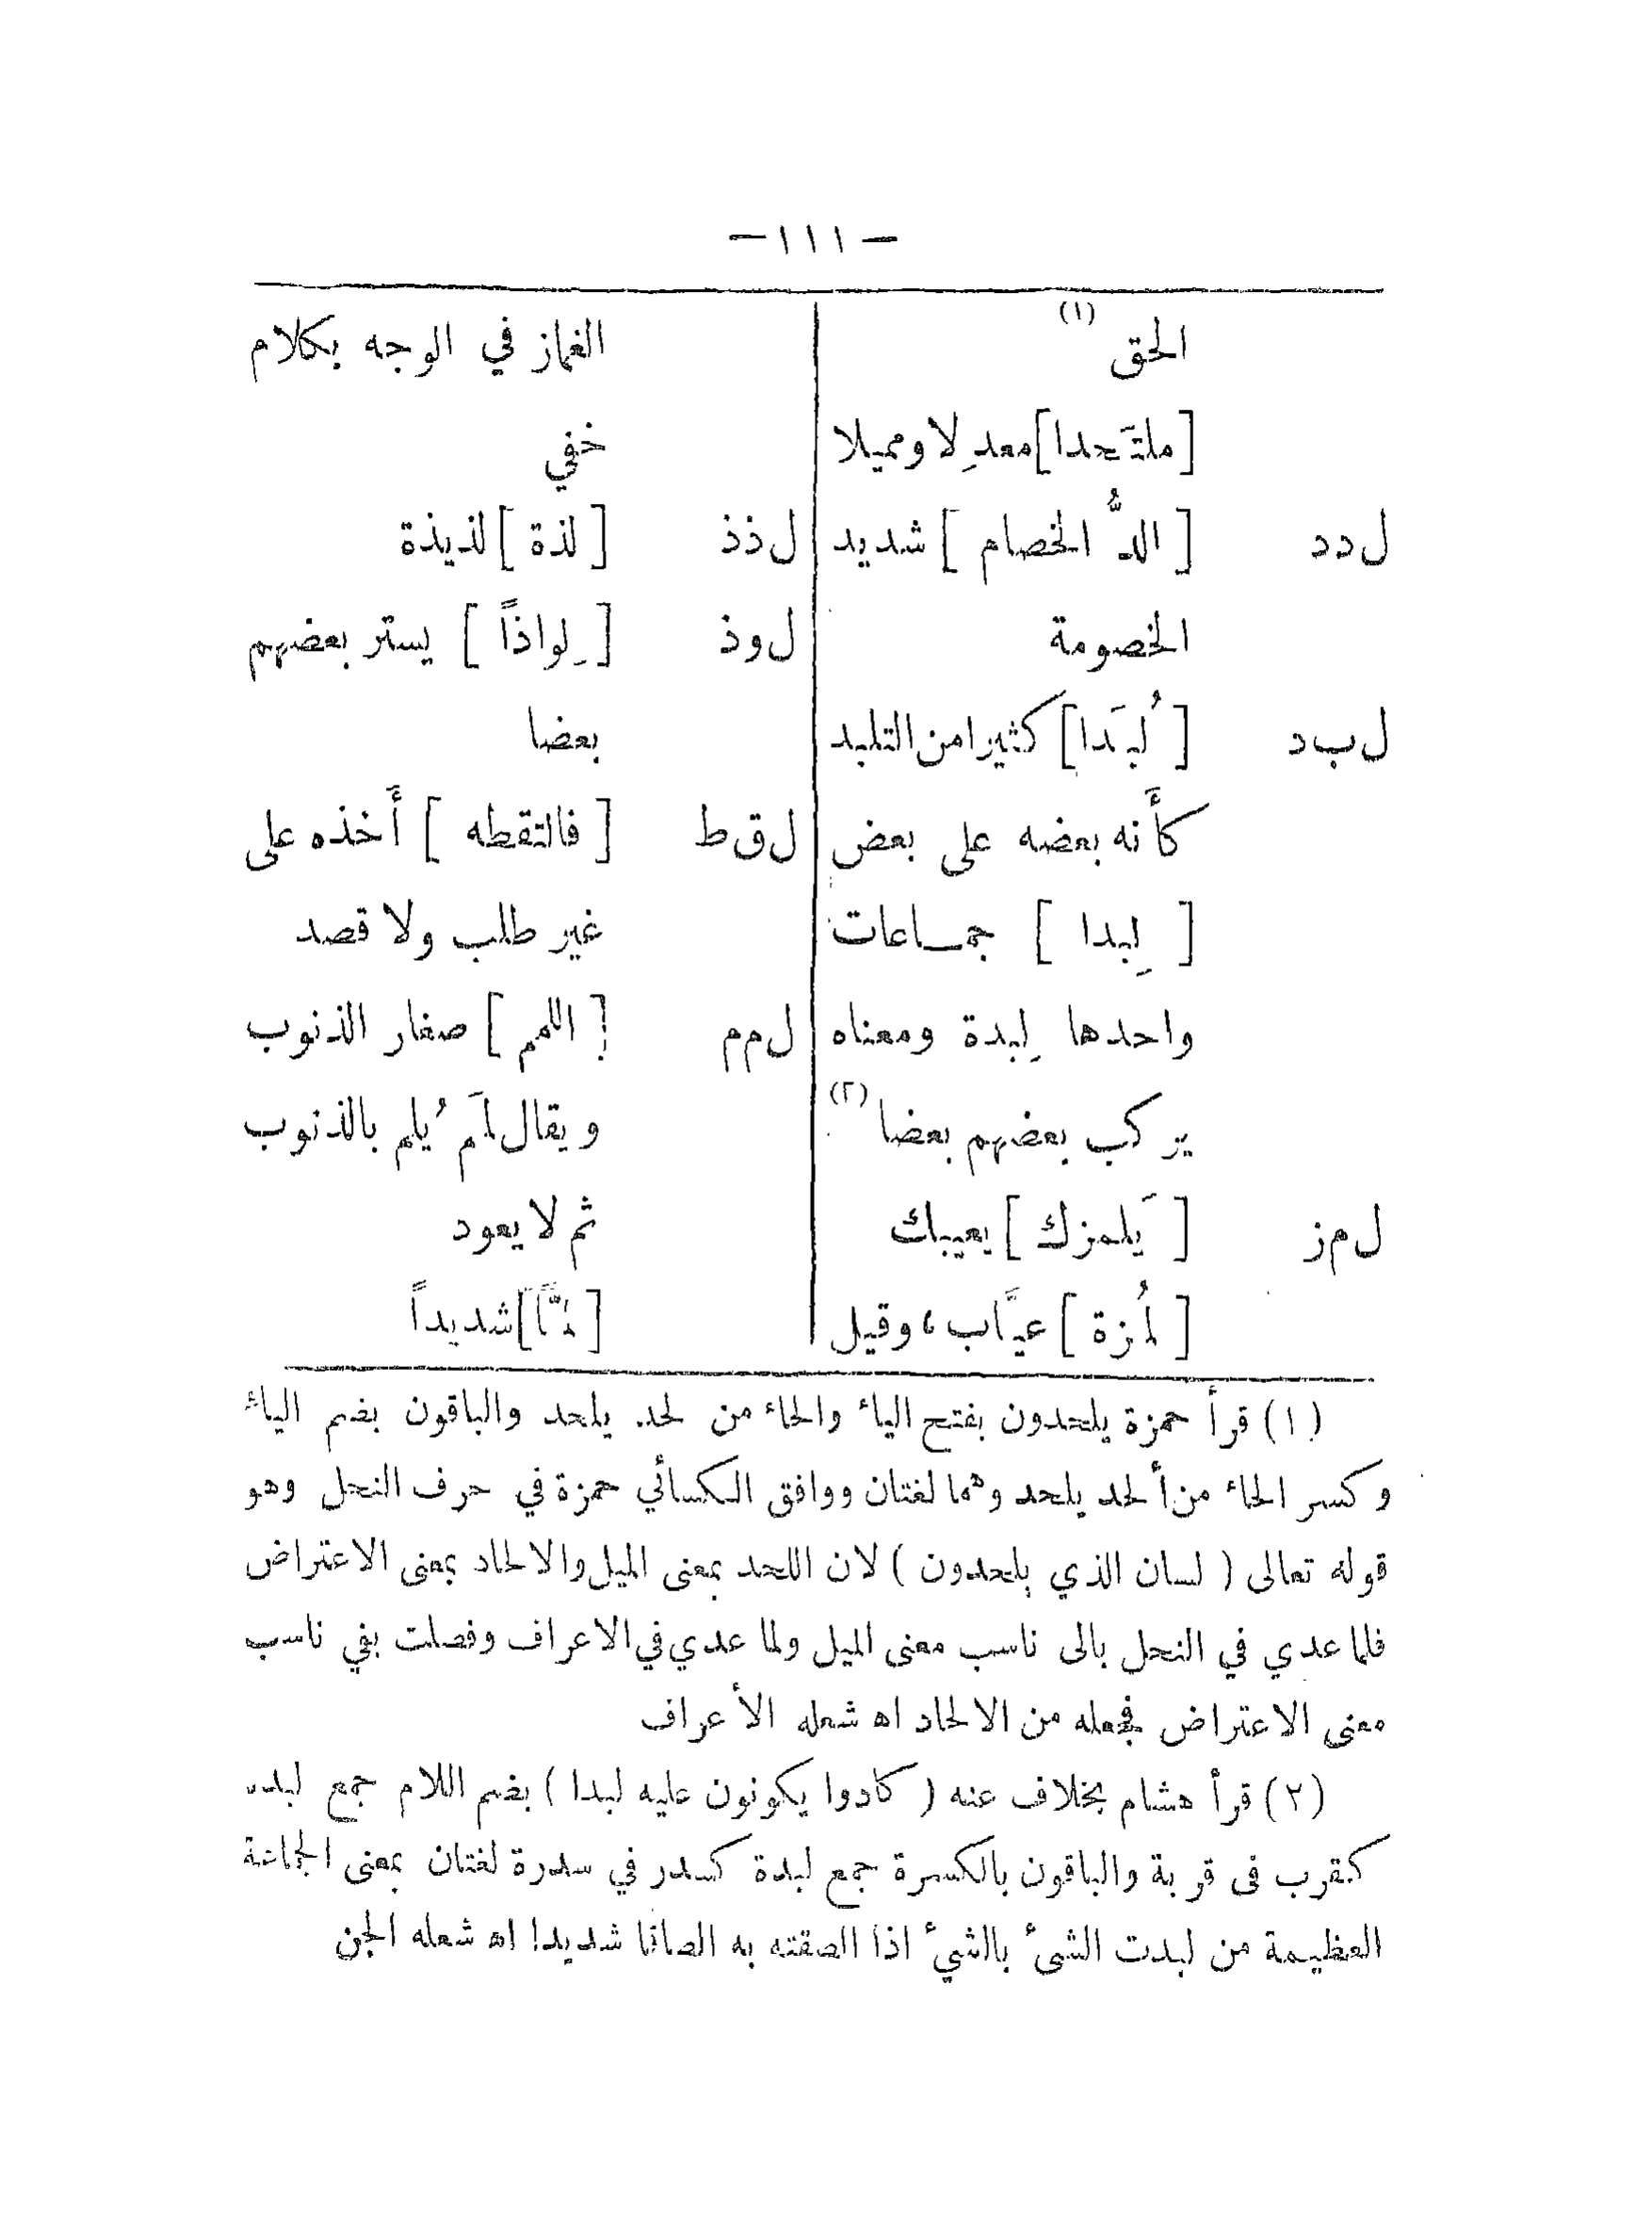 — ١١١ —
الحق (١)
[ملتَحدا] معدِلا ومميلا
ل د د [الدُّ الخصام] شديد
الخصومة
ل ب د [لُبَدا] كثيرا من التلبد
كأَنه بعضه على بعض
[لِبدا] جمـاعات
واحدها لِبدة ومعناه
يركب بعضهم بعضا (٢)
ل م ز [يَلمزك] يعيبك
[لُمزة] عيَّاب، وقيل
الغماز في الوجه بكلام
خفي
ل ذ ذ [لذة] لذيذة
ل و ذ [لِواذاً] يستر بعضهم
بعضا
ل ق ط [فالتقطه] أَخذه على
غير طلب ولا قصد
ل م م [اللمم] صغار الذنوب
ويقال لَم يُلم بالذنوب
ثم لا يعود
[لمَّاً] شديداً
(١) قرأ حمزة يلحدون بفتح الياء والحاء من لحد يلحد والباقون بضم الياء
وكسر الحاء من ألحد يلحد وهما لغتان ووافق الكسائي حمزة في حرف النحل وهو
قوله تعالى ( لسان الذي يلحدون ) لان اللحد بمعنى الميل والالحاد بمعنى الاعتراض
فلما عدي في النحل بالى ناسب معنى الميل ولما عدي في الاعراف وفصلت بفي ناسب
معنى الاعتراض فجعله من الالحاد اه شعله الأعراف
(٢) قرأ هشام بخلاف عنه ( كادوا يكونون عليه لبدا ) بضم اللام جمع لبده
كقرب فى قربة والباقون بالكسرة جمع لبدة كسدر في سدرة لغتان بمعنى الجماعة
العظيمة من لبدت الشىء بالشيء اذا الصقته به الصاقا شديدا اه شعله الجن